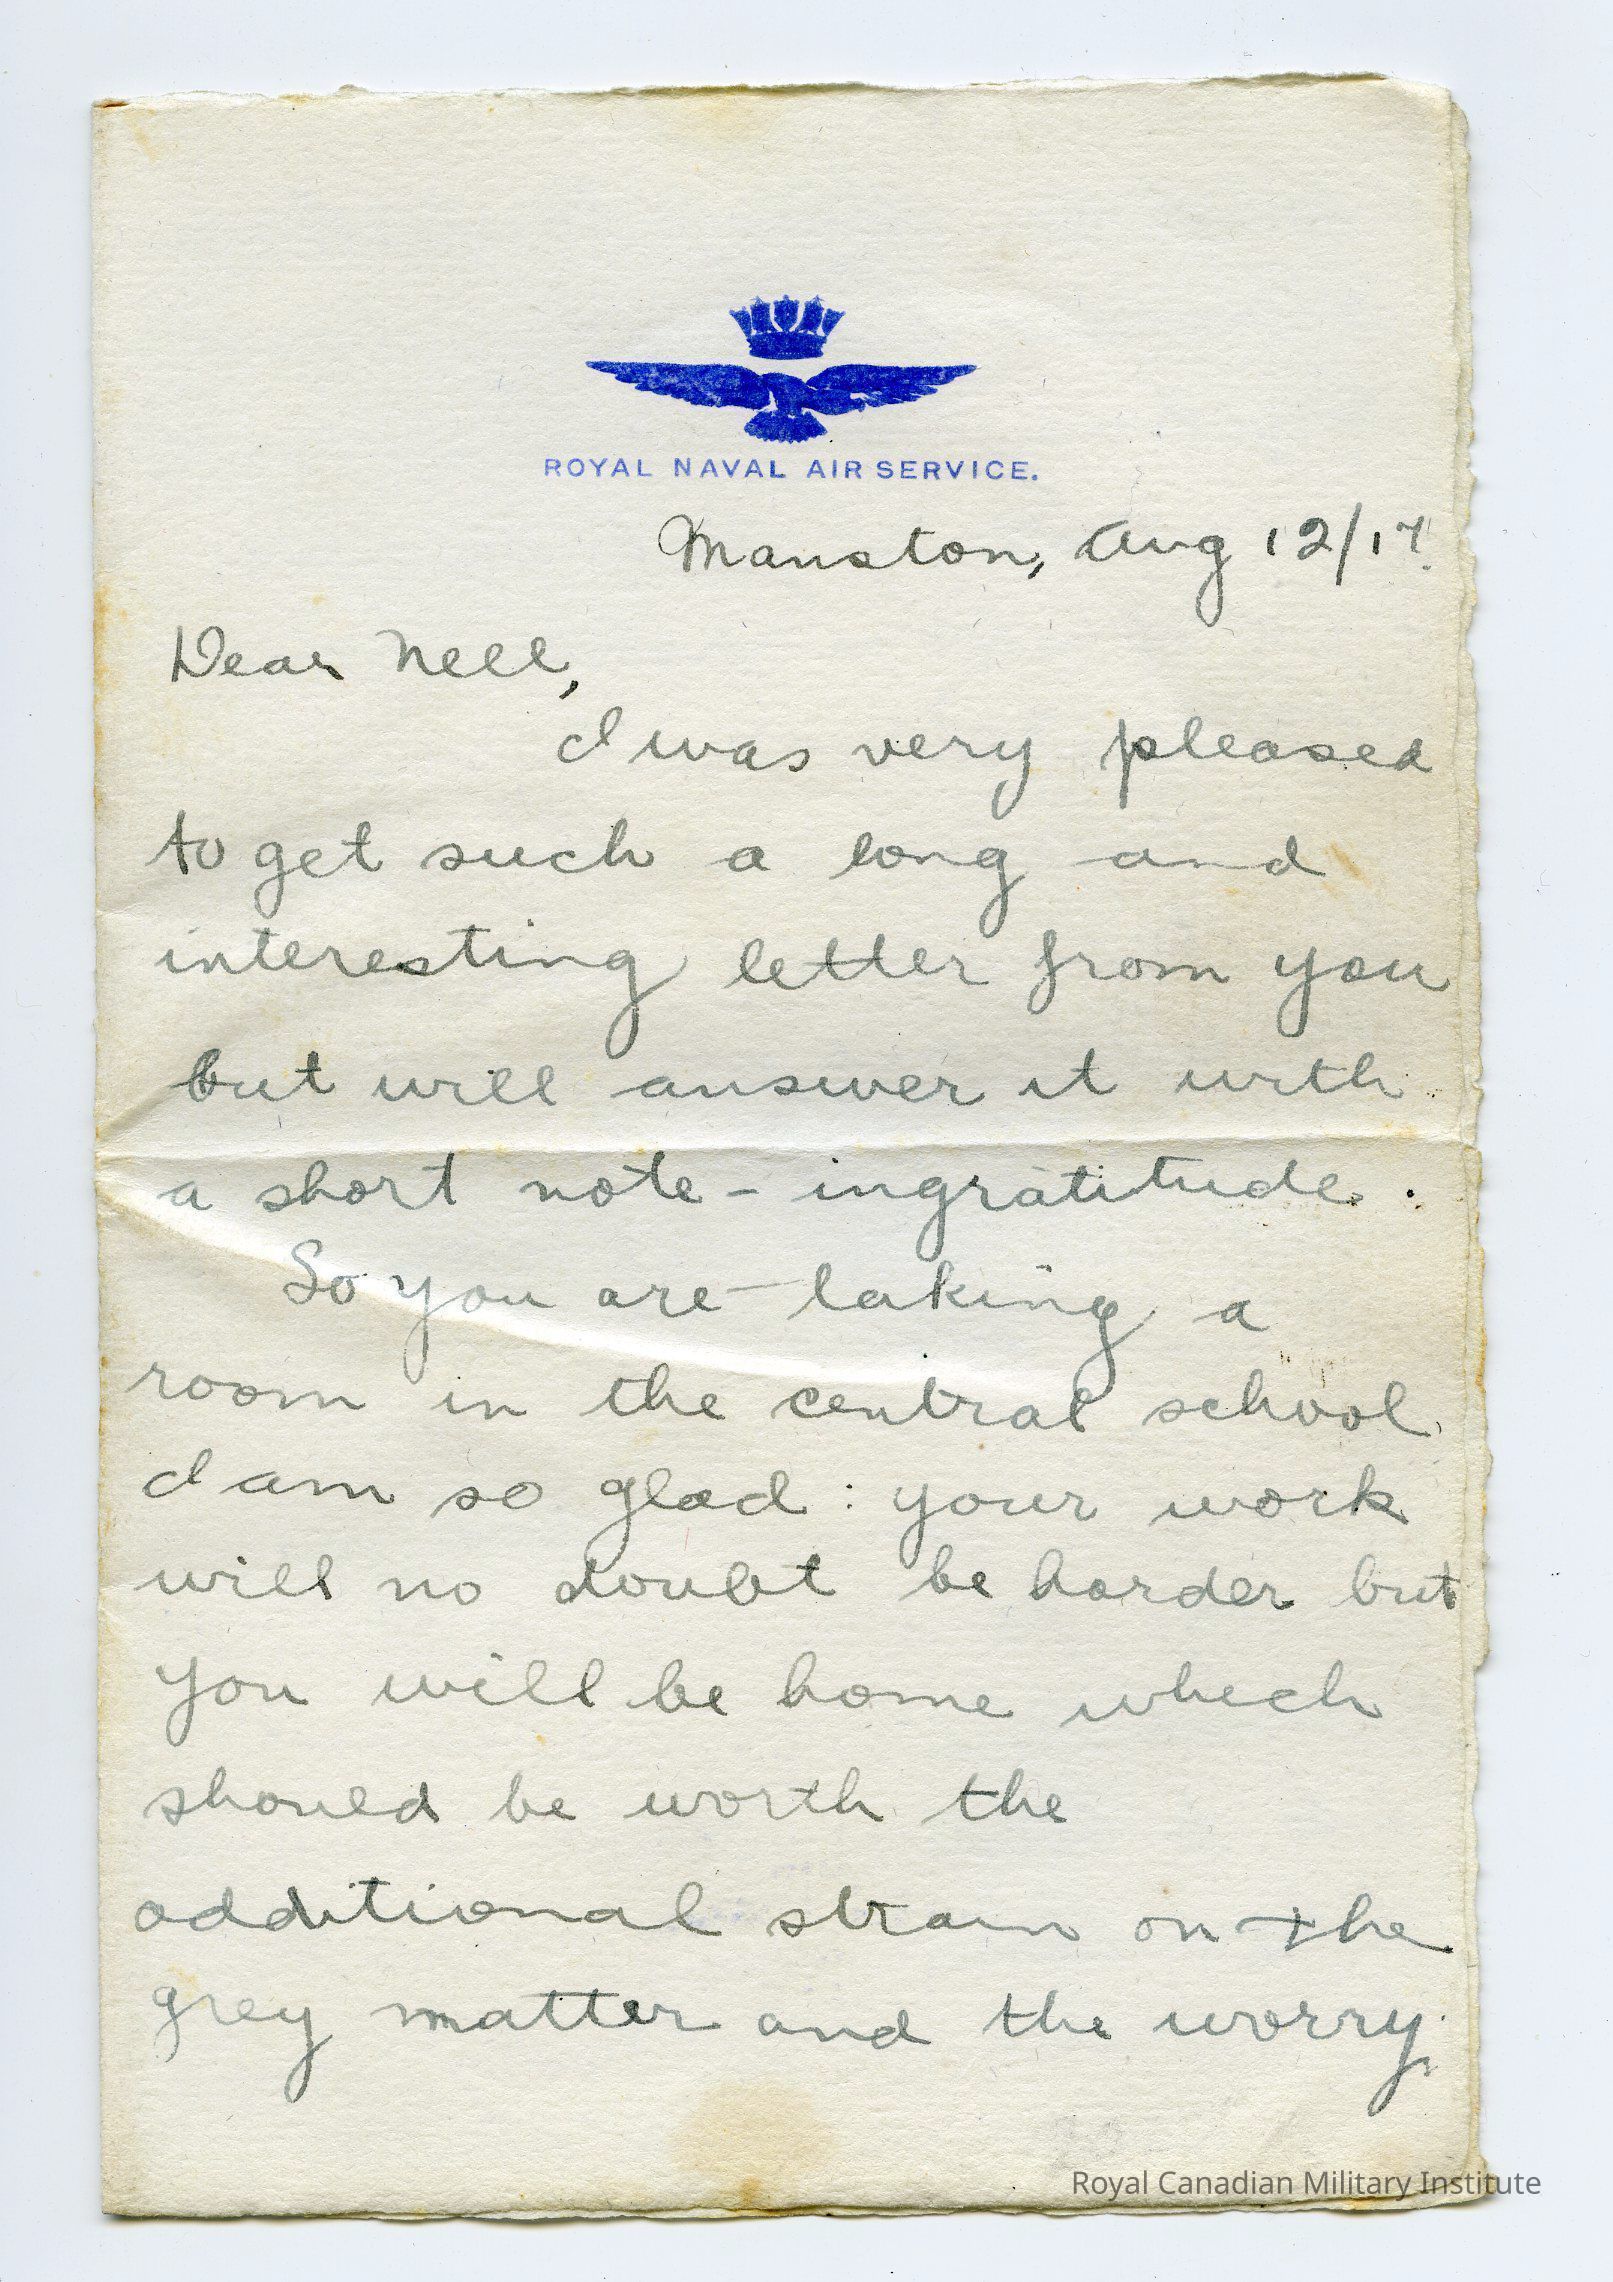 ROYAL NAVAL AIR SERVICE.
Manston, Aug 12/17.
Dear Nell,
I was very pleased
to get such a long and
interesting letter from you
but will answer it with
a short note - ingratitude.
So you are taking a
room in the central school
I am so glad: your work
will no doubt be harder but
you will be home which
should be worth the
additional strain on the
grey matter and the worry.
Royal Canadian Military Institute